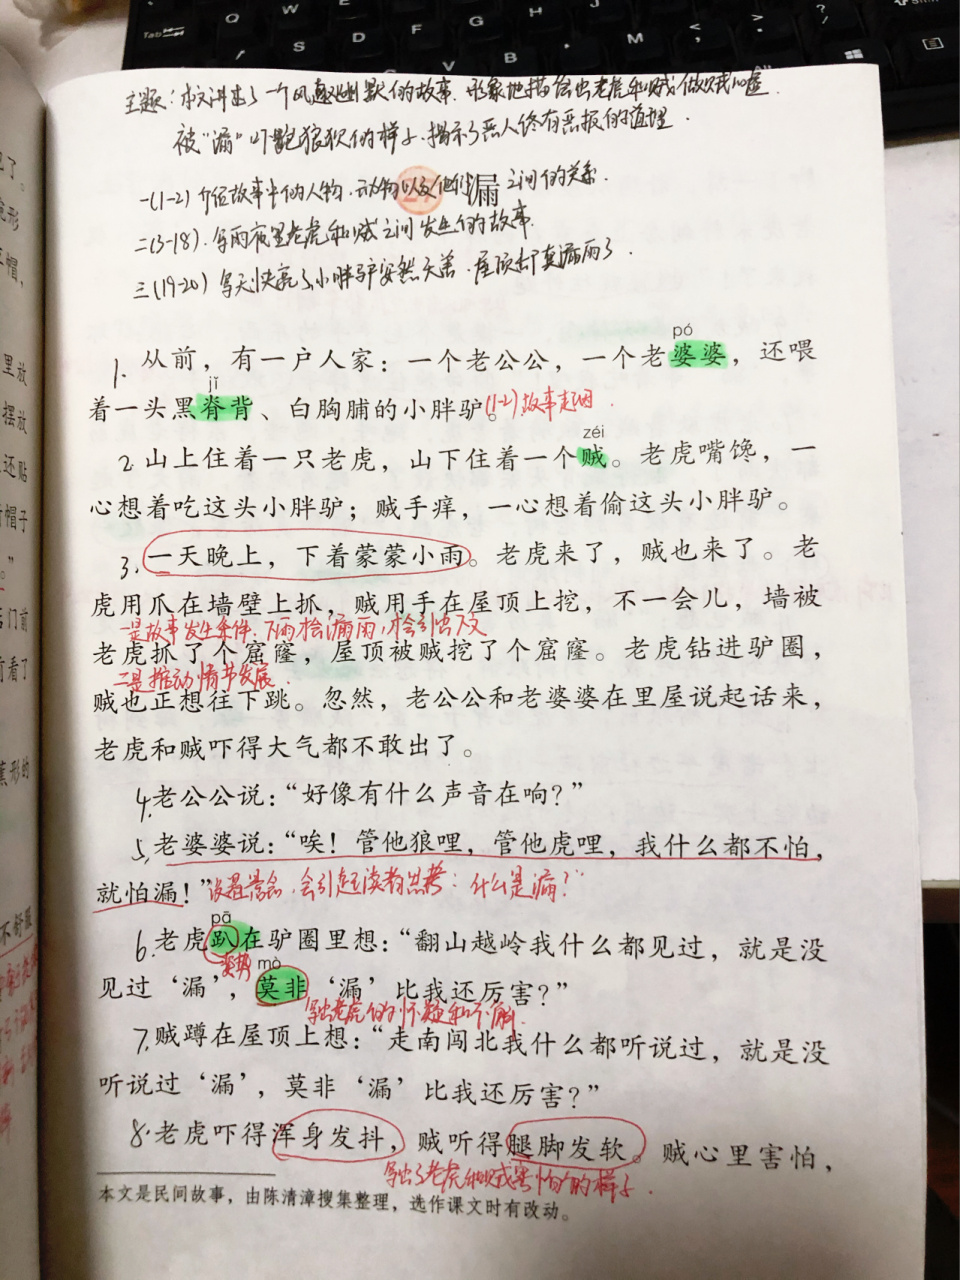 主题：本文讲述了一个风趣幽默的故事.形象地描绘出老虎和贼做贼心虚
被“漏”吓跑狼狈的样子.揭示了恶人终有恶报的道理.
27 漏
一(1-2) 介绍故事中的人物.动物以及他们之间的关系.
二(3-18).写雨夜里老虎和贼之间发生的故事.
三(19-20) 写天快亮了小胖驴安然无恙.屋顶却真漏雨了.
pó
1. 从前，有一户人家：一个老公公，一个老婆婆，还喂
jǐ
着一头黑脊背、白胸脯的小胖驴。(1-2)故事起因.
zéi
2.山上住着一只老虎，山下住着一个贼。老虎嘴馋，一
心想着吃这头小胖驴；贼手痒，一心想着偷这头小胖驴。
3.一天晚上，下着蒙蒙小雨。老虎来了，贼也来了。老
虎用爪在墙壁上抓，贼用手在屋顶上挖，不一会儿，墙被
一是故事发生条件.下雨会漏雨.会引出下文
老虎抓了个窟窿，屋顶被贼挖了个窟窿。老虎钻进驴圈，
二是推动情节发展.
贼也正想往下跳。忽然，老公公和老婆婆在里屋说起话来，
老虎和贼吓得大气都不敢出了。
4.老公公说：“好像有什么声音在响？”
5.老婆婆说：“唉！管他狼哩，管他虎哩，我什么都不怕，
就怕漏！”设置悬念.会引起读者思考：什么是漏？
pā
6.老虎趴在驴圈里想：“翻山越岭我什么都见过，就是没
mò
见过‘漏’，莫非‘漏’比我还厉害？”
写出老虎的怀疑和不解.
7.贼蹲在屋顶上想：“走南闯北我什么都听说过，就是没
听说过‘漏’，莫非‘漏’比我还厉害？”
8.老虎吓得浑身发抖，贼听得腿脚发软。贼心里害怕，
写出了老虎和贼害怕的样子.
本文是民间故事，由陈清漳搜集整理，选作课文时有改动。